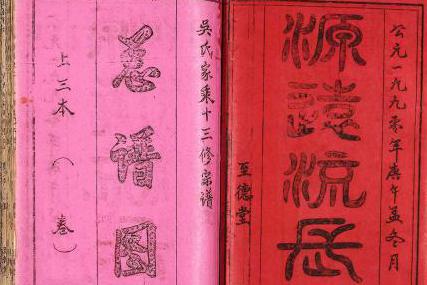 公元一九九零年庚午孟冬月
源遠流長
至德堂
吳氏家乘十三修宗譜
譜圖
上三本（ 卷）